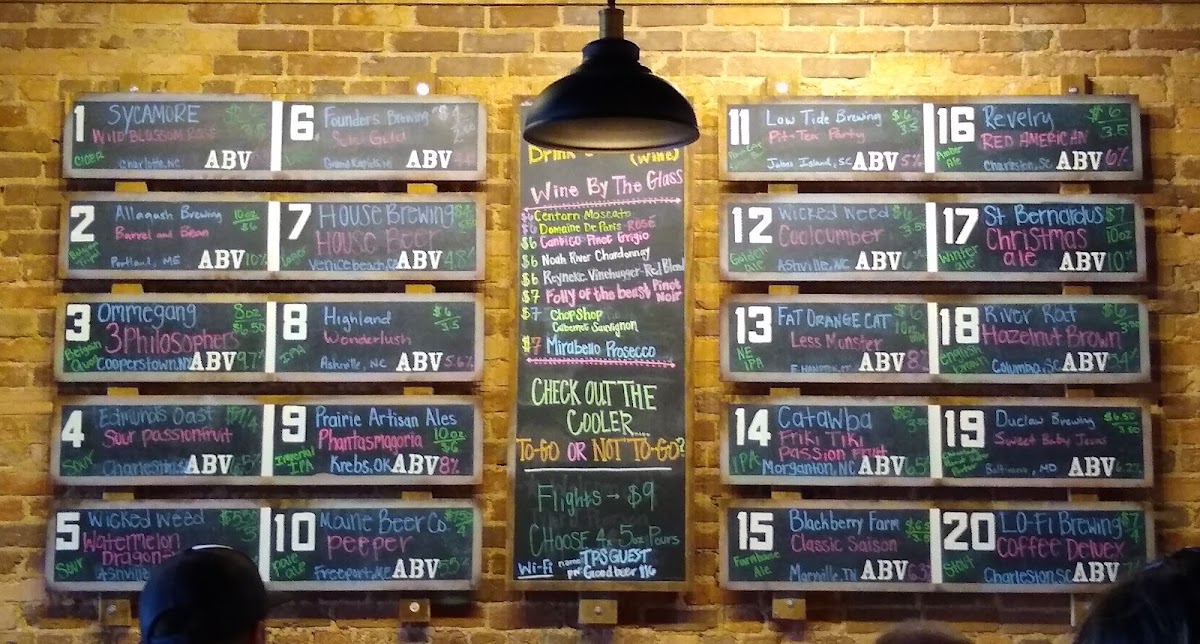 1 SYCAMORE
WILD BLOSSOM ROSÉ
CIDER Charlotte, NC ABV
6 Founders Brewing
Solid Gold
Grand Rapids, MI ABV
2 Allagash Brewing 10oz
Barrel and Bean $6
Portland, ME ABV 10%
7 House Brewing
House Beer
Lager Venice beach, CA ABV 4.8%
3 Ommegang 8oz
3 Philosophers $6.50
Belgian Quad Cooperstown, NY ABV 9.7%
8 Highland $6
Wonderlush 3.5
IPA Asheville, NC ABV 5.6%
4 Edmunds Oast
Sour passionfruit
Sour Charleston, SC ABV
9 Prairie Artisan Ales
Phantasmagoria 10oz
$6
Imperial IPA Krebs, OK ABV 8%
5 Wicked Weed
Watermelon
Dragon
Sour Ashville
10 Maine Beer Co.
peeper
pale ale Freeport, ME ABV 5.5%
(WINE)
Wine By The Glass
$6 Centorri Moscato
Domaine De Paris ROSÉ
$6 Cantico Pinot Grigio
$6 Noah River Chardonnay
$6 Reyneke Vinehugger-Red Blend
$7 Folly of the beast Pinot Noir
$7 ChopShop
Cabernet Sauvignon
$7 Mirabello Prosecco
CHECK OUT THE
COOLER...
TO-GO OR NOT TO-GO?
Flights → $9
Choose 4x 5oz Pours
Wi-Fi name: TPSGUEST
pw: Goodbeer
11 Low Tide Brewing $6
Pit-Tea Party 3.5
Johns Island, SC ABV 5%
16 Revelry $6
RED AMERICAN 3.5
Amber Ale Charleston, SC ABV 6%
12 Wicked Weed
Coolcumber
Golden Ale Ashville, NC ABV
17 St Bernardus $7
Christmas 10oz
ale
Winter ale ABV 10%
13 FAT ORANGE CAT $6
Less Monster
NE IPA ABV 8%
18 River Rat
Hazelnut Brown
English brown Columbia, SC ABV
14 Catawba
Friki Tiki
Passion Fruit
IPA Morganton, NC ABV
19 Duclaw Brewing $6.50
Sweet Baby Jesus
Baltimore, MD ABV
15 Blackberry Farm
Classic Saison
Farmhouse Ale Maryville, TN ABV 6.3
20 LO-Fi Brewing
Coffee Deluex
Stout Charleston, SC ABV